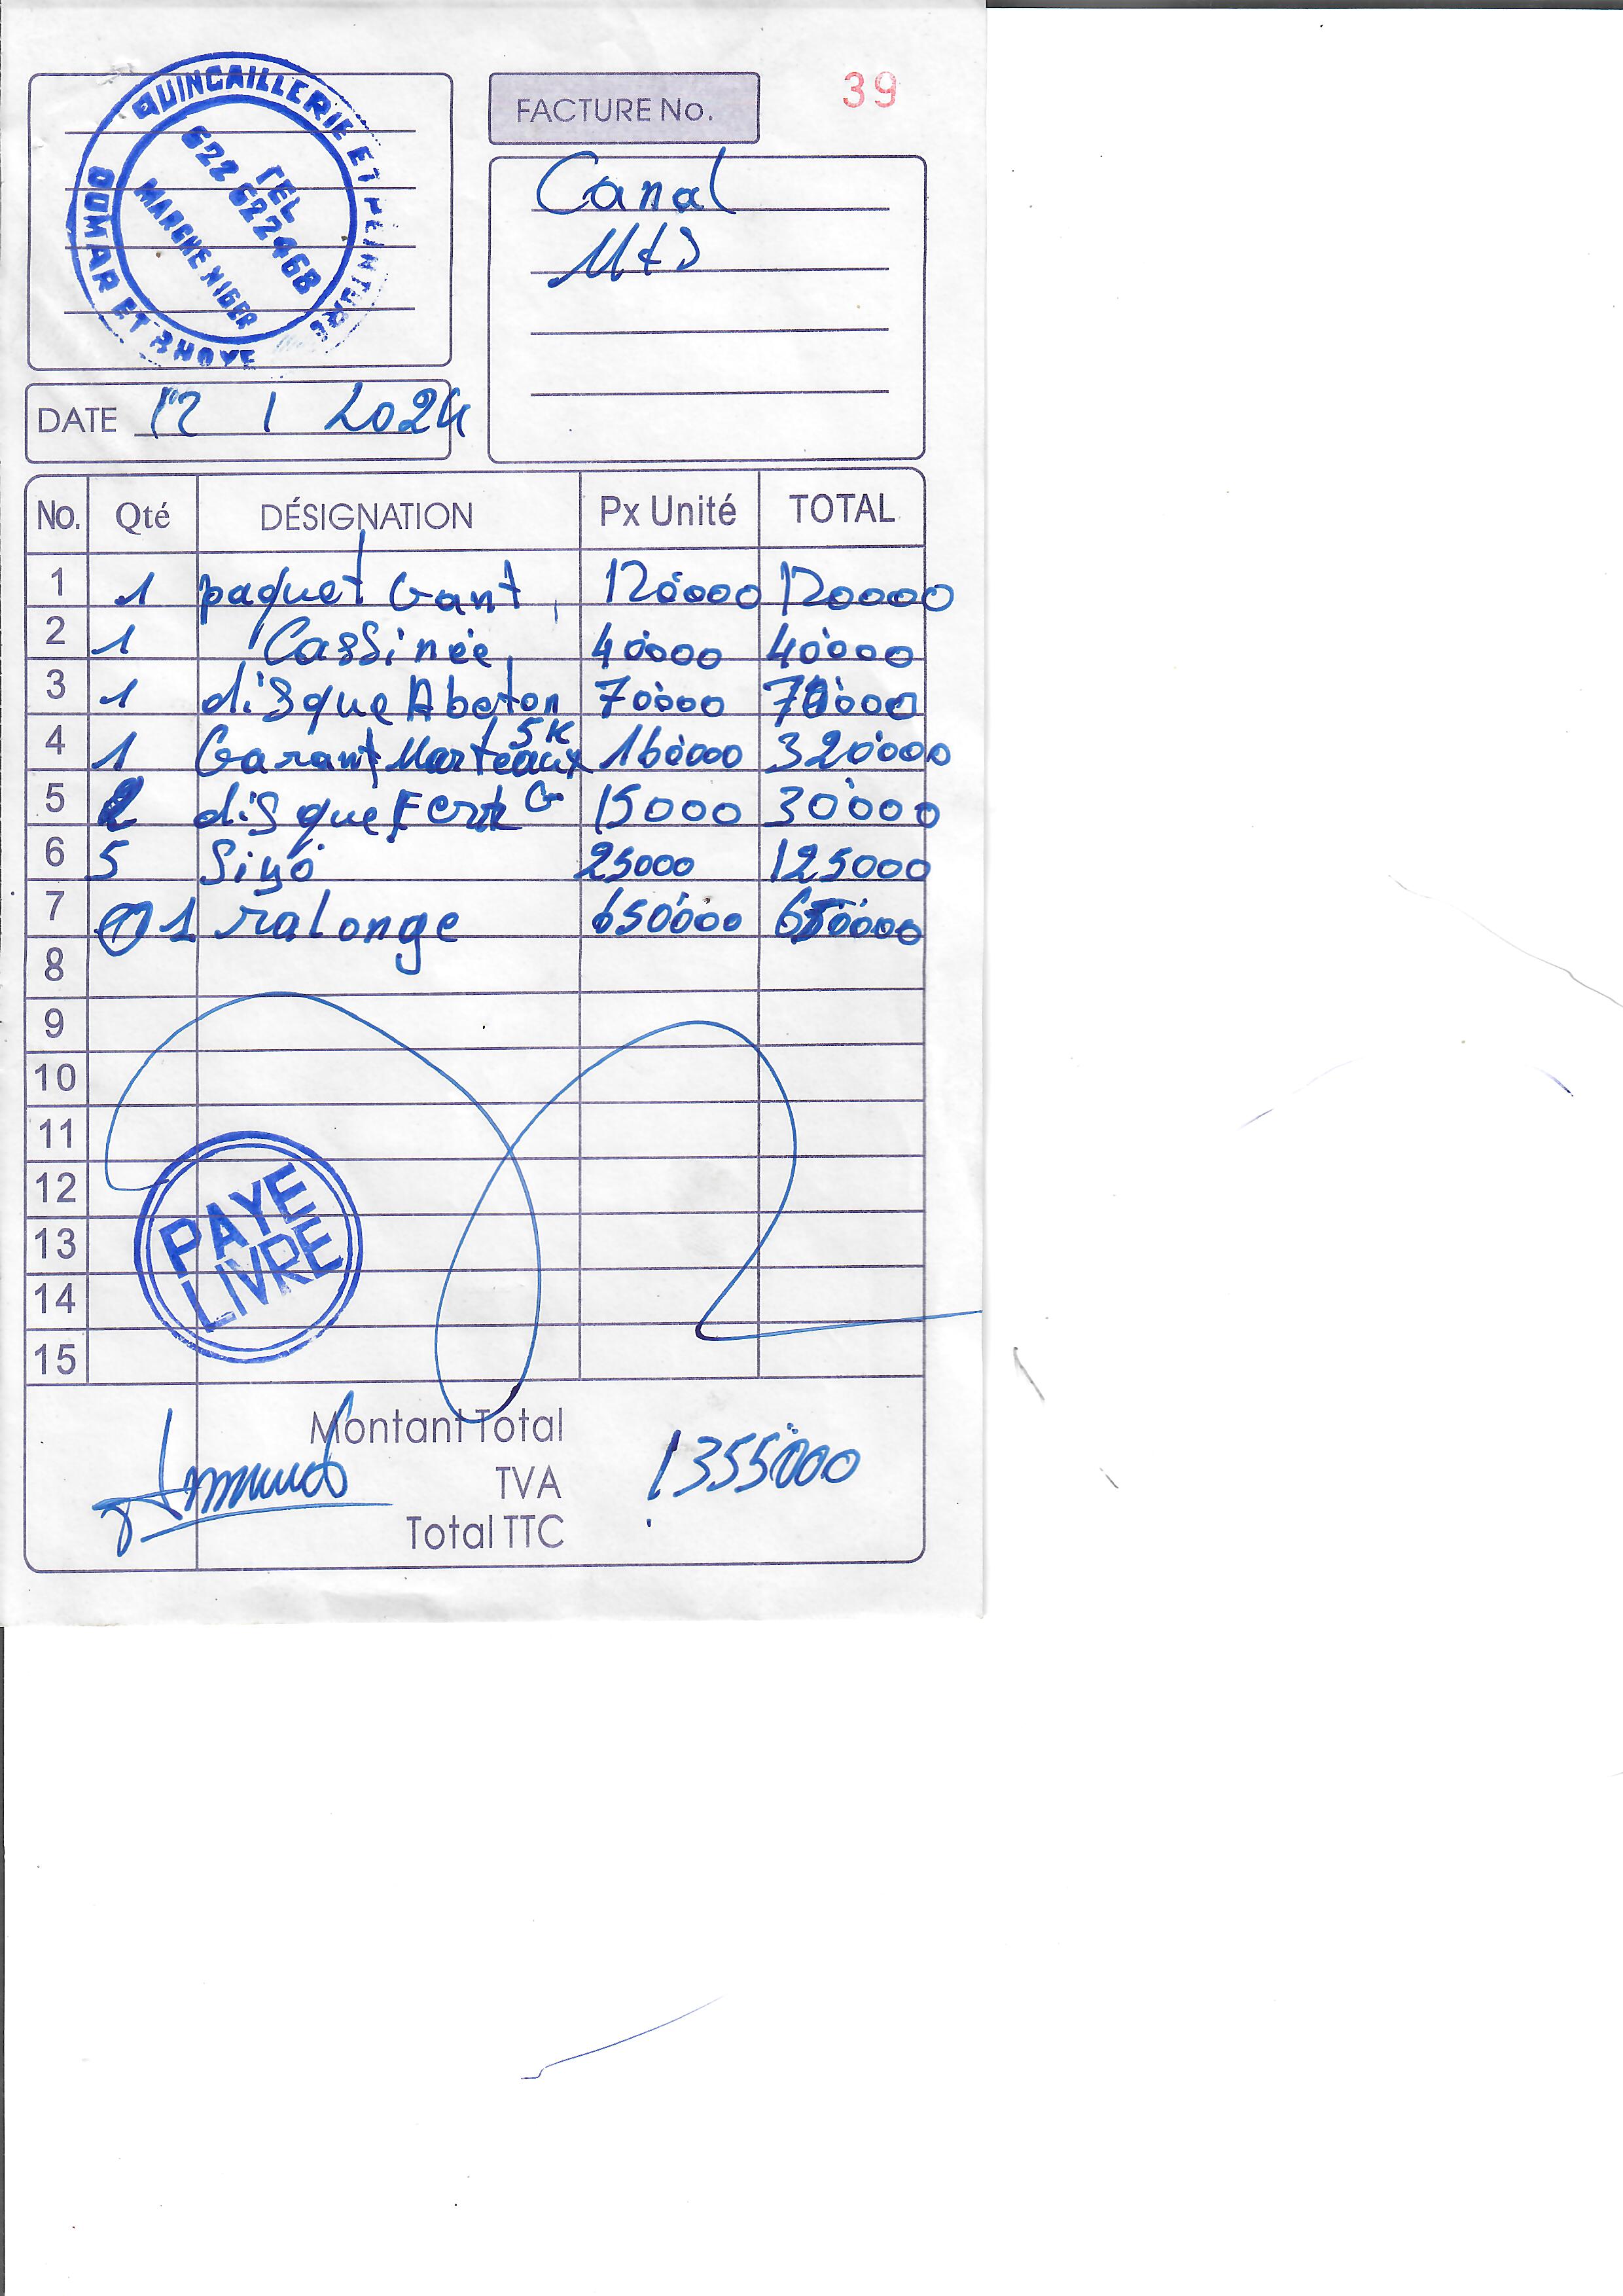 QUINCAILLERIE ET PEINTURE
OUMAR ET
TEL
622 622468
MARCHE NIGER
FACTURE No.
39
Canal
DATE 1 2024
No. Qté DÉSIGNATION Px Unité TOTAL
1 1 paquet Gant 120000 120000
2 1 Cassinée 40000 40000
3 1 disque A beton 70000 70000
4 1 Garant Marteaux 5K 160000 320000
5 2 disque G 15000 30000
6 5 25000 125000
7 1 ralonge 650000 650000
8
9
10
11
12
13
14
15
PAYE
LIVRE
Montant Total
TVA 1355000
Total TTC